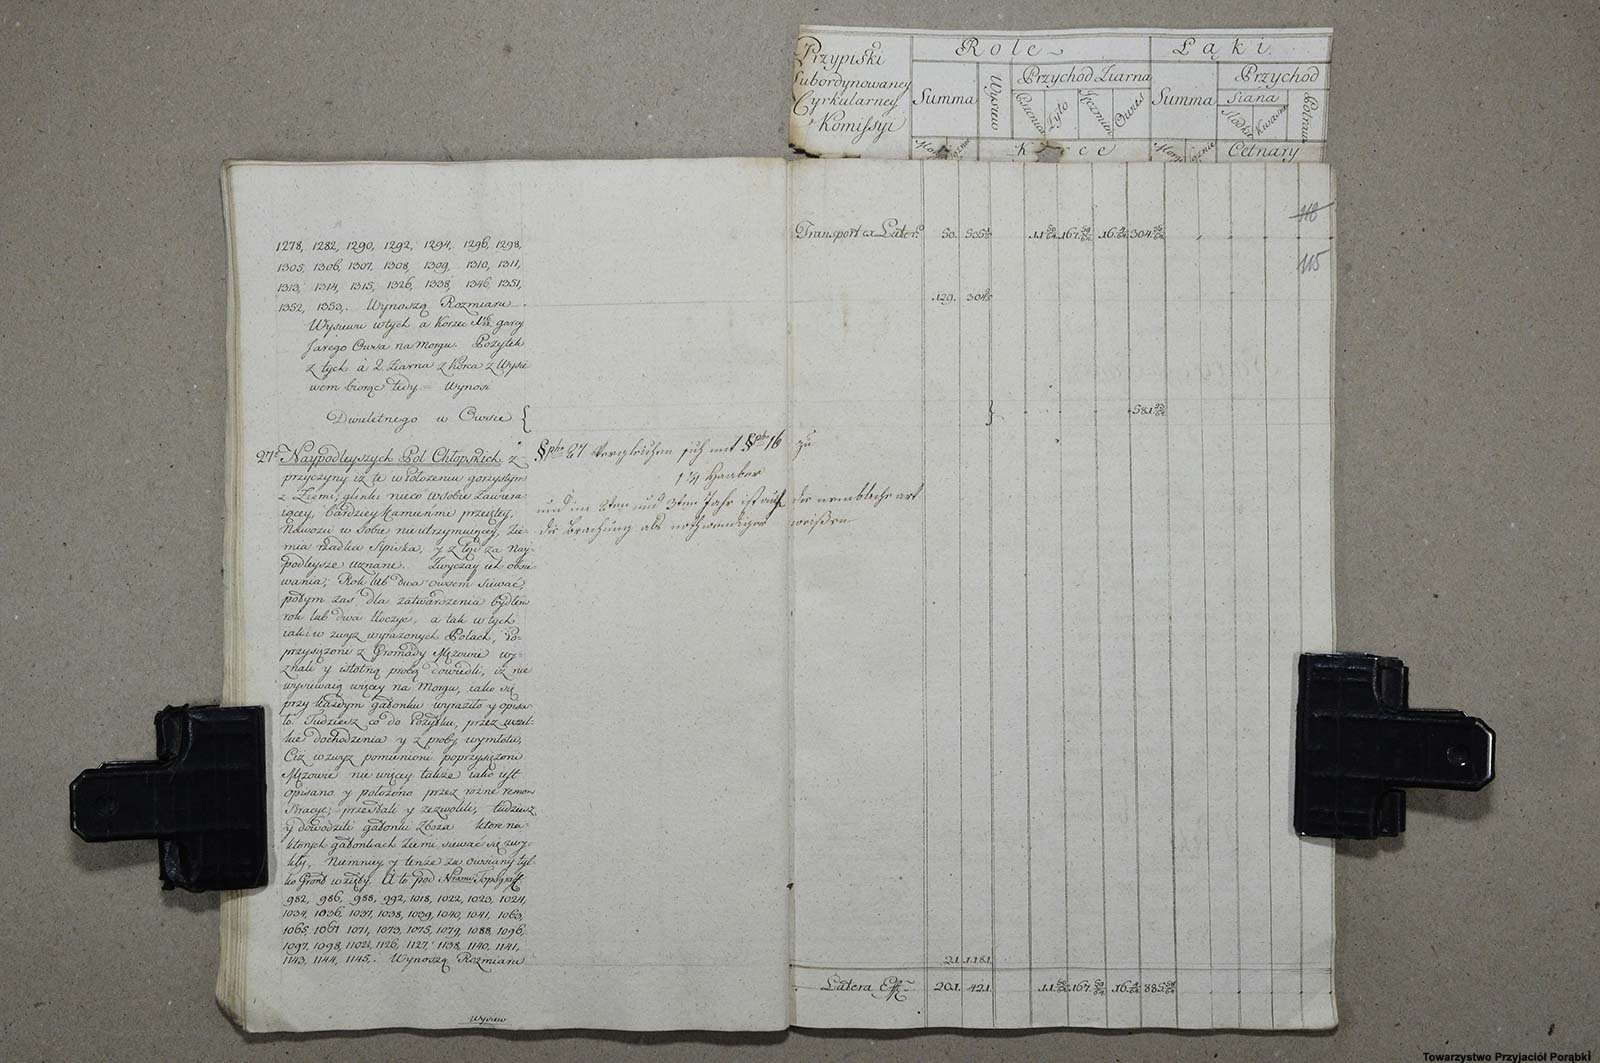 Przypiski
Subordynowaney
Cyrkularney
Komissyi
Role
Łąki
Summa
Wysiew
Przychod Ziarna
Pszenica
Żyto
Jęczmien
Owies
Summa
Przychod
Siana
Słodkie
Kwaśne
Potraw
Korce
Cetnary
1278, 1282, 1290, 1292, 1294, 1296, 1298,
1305, 1306, 1307, 1308, 1309, 1310, 1311,
1313, 1314, 1315, 1326, 1338, 1346, 1351,
1352, 1353,. Wynoszą Rozmiaru
Wysiewu wtych a Korzec garcy
Jarego Owsa na Morgu. Pożytek
z tych à 2 Ziarna z Korca z Wysie
wem biorąc tedy Wynosi
Dwuletnego w Owsie {
27º Naypodleyszych Pol Chłopskich, z
przyczyny iż te w Położeniu gorzystym
z Ziemi, glinki nieco wsobie Zawiera-
iącey, bardziey Kamieńmi przeiętey,
Nawozu w Sobie nieutrzymuiącey, Zie-
mia rzadka Sipiska, y z tąd za Nay-
podleysze uznane. Zwyczay ich obsie-
wania; Rok lub dwa owsem siewać,
potym zaś dla zatwardzenia bydłem
rok lub dwa tłoczyć, a tak w tych
iako w zwyz wyrażonych Polach, Po-
przysiężoni z Gromady Mężowie wy-
znali y istotną probą dowiedli, iż nie
wysiewaią więcey na Morgu, iako się
przy każdym gatonku wyraziło y opisa-
ło. Tudziesz co do Pożytku, przez
kie dochodzenia y z proby wymłotu,
Ciż wzwyz pomienioni poprzysiężeni
Mężowie nie więcey takze iako iest
opisano y położono przez rozne remon
stracye, przestali y zezwolili, tudziesz
y dowodzili gatonki Zboza ktore na
których gatonkach Ziemi siewać się zwy-
kły, Niemniey y tenże za owsiany tyl-
ko Grond wzięty. A to pod Nrami Topograf:
982, 986, 988, 992, 1018, 1022, 1023, 1024,
1034, 1036, 1037, 1038, 1039, 1040, 1041, 1063,
1065, 1067 1071, 1073, 1075, 1079, 1088, 1096,
1097, 1098, 1102, 1126, 1127, 1138, 1140, 1141,
1143, 1144, 1145,. Wynoszą Rozmiaru
Wysiew
27 vergleichen sich mit 16 zu
Haaber
und im 2ten und 3ten Jahr ist auch die art
die Brachung als nothwendiger
Transport ex Later:
50.
167.
16.
304
116
115
129. 304
581
21. 1181
Latera
201. 421
11
167.
16.
885
Towarzystwo Przyjaciół Porąbki